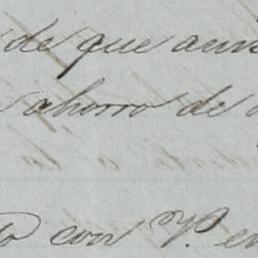 de que aun
ahorro de
con V. en